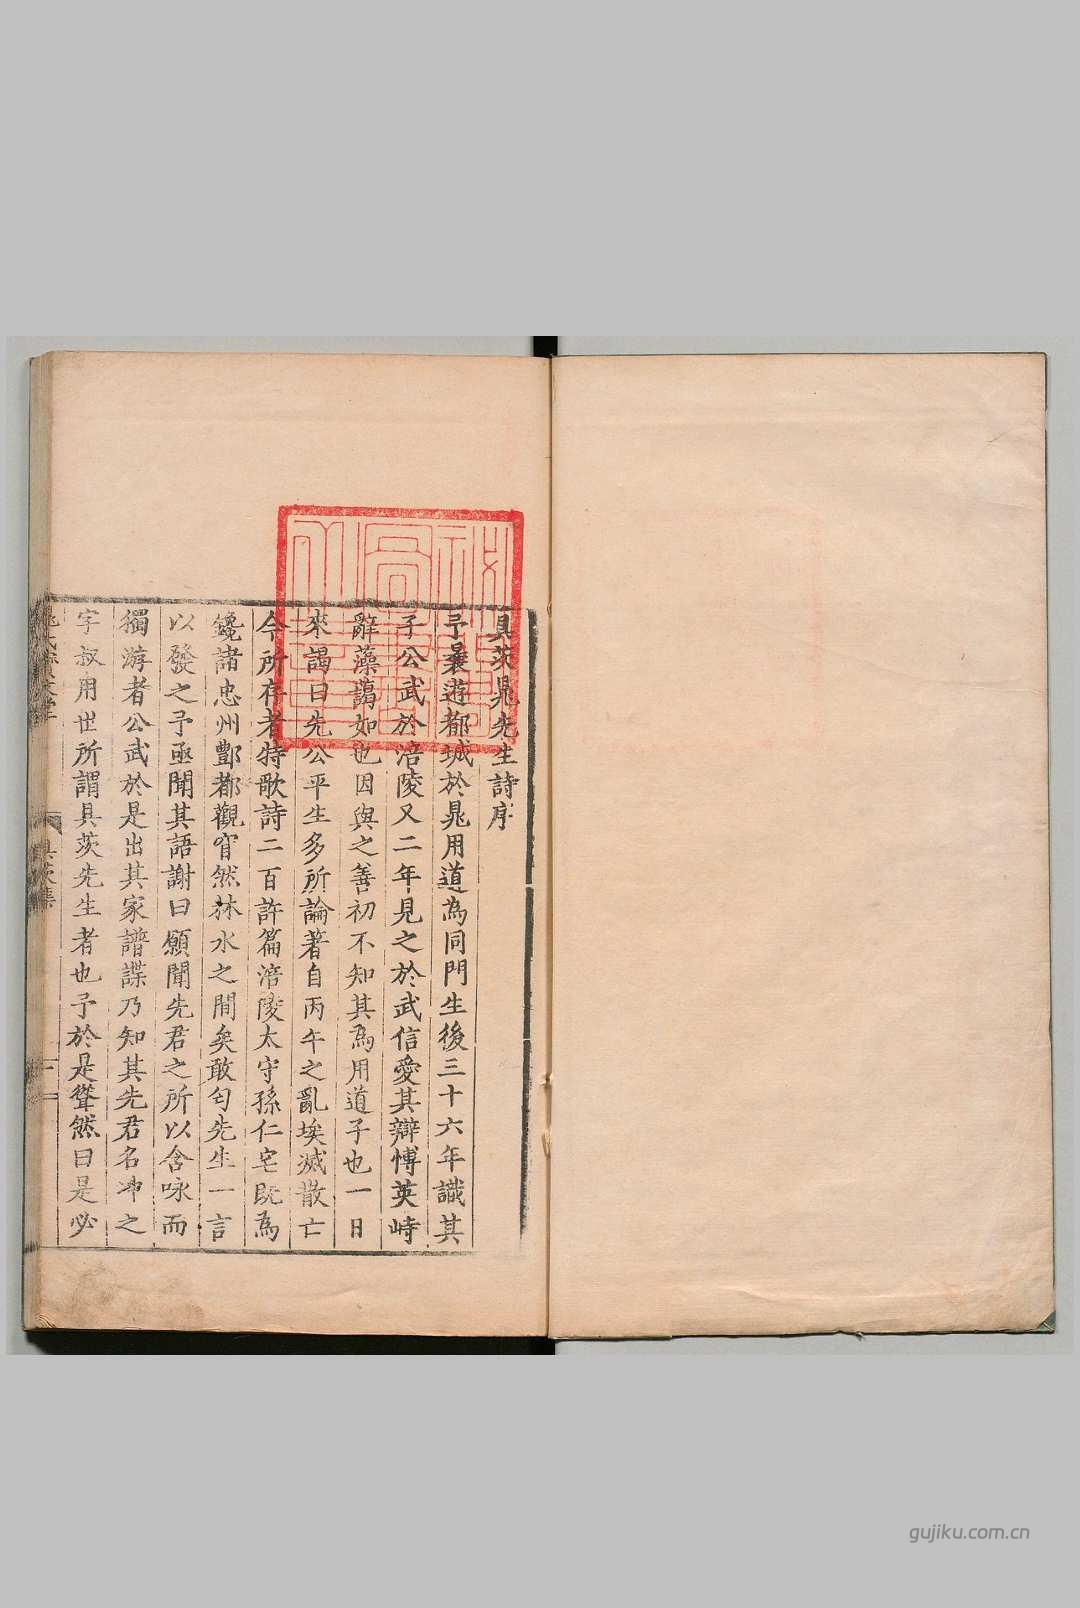 具茨晁先生詩序
予曩遊都城於晁用道為同門生後三十六年識其
子公武於涪陵又二年見之於武信愛其辯博英峙
辭藻藹如也因與之善初不知其為用道子也一日
來謁曰先公平生多所論著自丙午之亂埃滅散亡
今所存者特歌詩二百許篇涪陵太守孫仁宅既為
鑱諸忠州酆都觀窅然林水之間矣敢匄先生一言
以發之予亟聞其語謝曰願聞先君之所以含咏而
獨游者公武於是出其家譜諜乃知其先君名冲之
字叔用世所謂具茨先生者也予於是聳然曰是必
具茨集
一
gujiku.com.cn